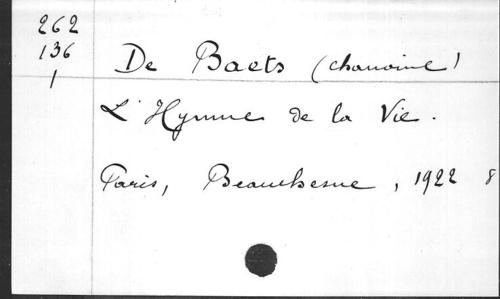 262
136
1
De Baets (chanoine)
L'Hymne de la Vie.
Paris, Beauchesne, 1922 8